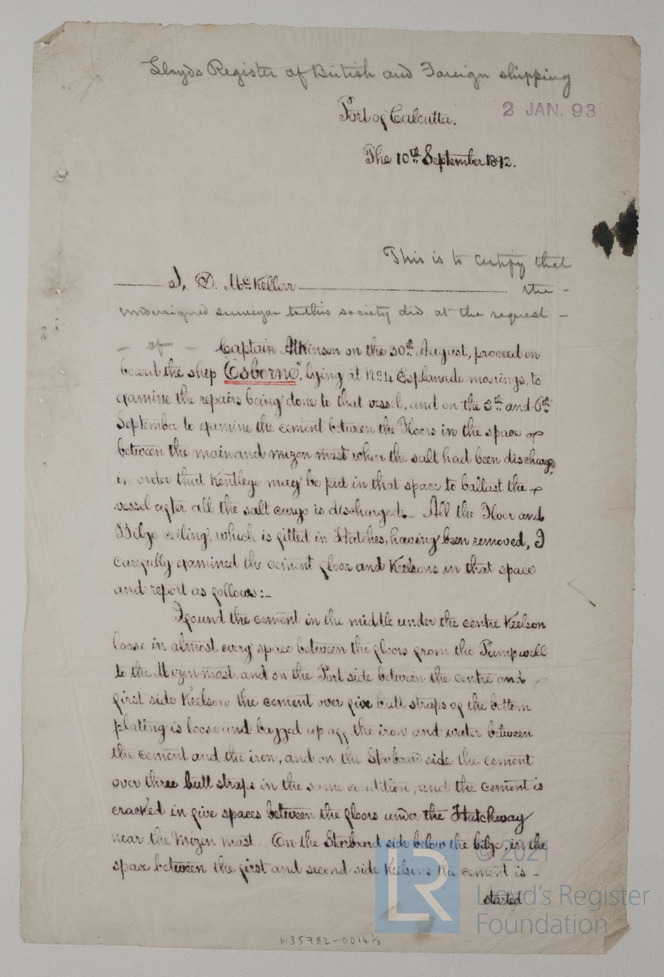 Lloyds Register of British and Foreign shipping
Port of Calcutta.
2 JAN. 93
The 10th September 1892.
This is to certify that
I, D. McKellar the
undersigned surveyor to this society did at the request
of Captain Atkinson on the 30th August, proceed on
board the ship "Osborne", lying at No 4 Esplanade moorings, to
examine the repairs being done to that vessel, and on the 5th and 6th
September to examine the cement between the Floors in the space
between the main and mizen mast where the salt had been discharged
in order that Kentlege may be put in that space to ballast the
vessel after all the salt cargo is discharged. All the Floor and
Bilge ceiling, which is fitted in Hatches, having been removed, I
carefully examined the cement floor and Keelsons in that space
and report as follows:-
I found the cement in the middle under the centre Keelson
loose in almost every space between the floors from the Pumpwell
to the Mizen mast, and on the Port side between the centre and
first side Keelson the cement over five butt straps of the bottom
plating is loose and bagged up off the iron and water between
the cement and the iron, and on the Starboard side the cement
over three butt straps in the same condition, and the cement is
cracked in five spaces between the floors under the Hatchway
near the Mizen mast. On the Starboard side below the bilge, in the
space between the first and second side Keelsons the cement is -
started
LR
© 2021
Lloyd's Register
Foundation
W35782-0014